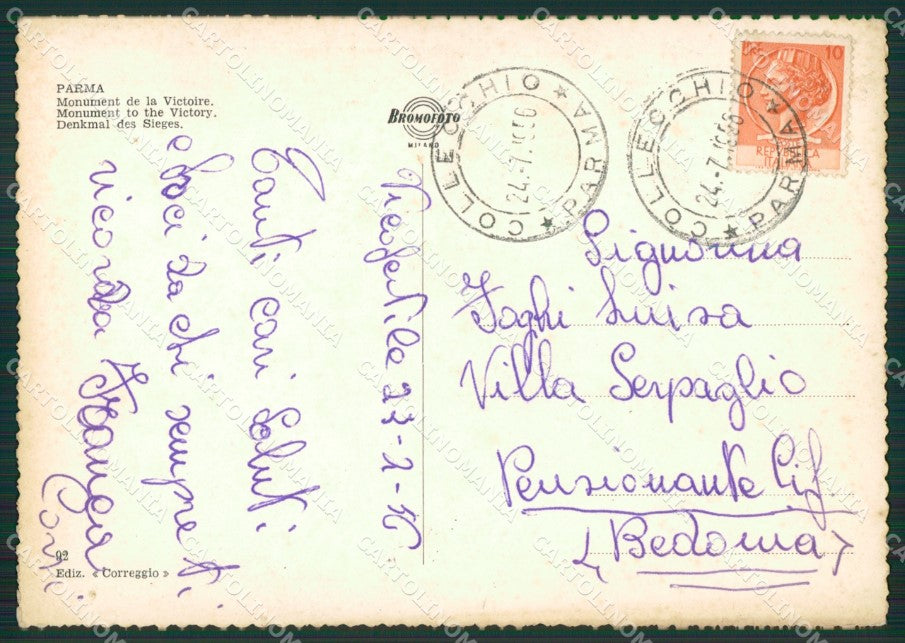 PARMA
Monument de la Victoire.
Monument to the Victory.
Denkmal des Sieges.
BROMOFOTO
MILANO
COLLECCHIO ★ PARMA ★
24.-7.1956
COLLECCHIO ★ PARMA ★
24.-7.1956
10
REPUBBLICA
Tanti cari saluti
e baci da chi sempre ti
ricorda Franca
Signorina
Foghi Luisa
Villa Serpaglio
Pensionante Cif
(Bedonia)
92
Ediz. « Correggio »
CARTOLINOMANIA